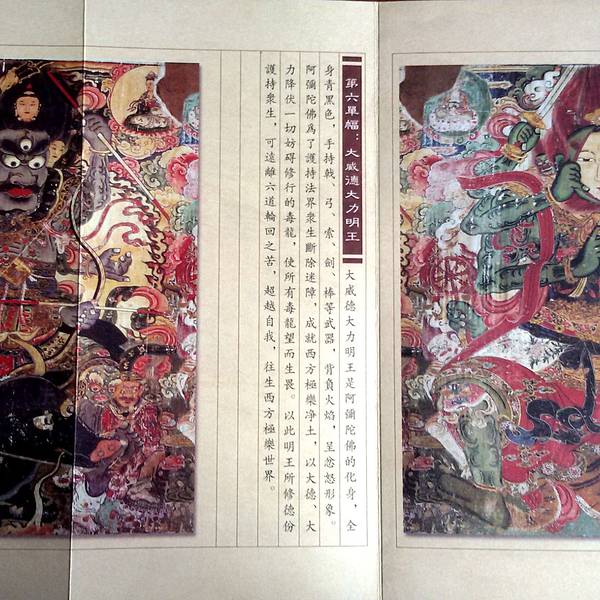 第六單幅：大威德大力明王
大威德大力明王是阿彌陀佛的化身，全
身青黑色，手持戟、弓、索、劍、棒等武器，背負火焰，呈忿怒形象。
阿彌陀佛爲了護持法界衆生斷除迷障，成就西方極樂净土，以大德、大
力降伏一切妨碍修行的毒龍，使所有毒龍望而生畏。以此明王所修德份
護持衆生，可遠離六道輪回之苦，超越自我，往生西方極樂世界。